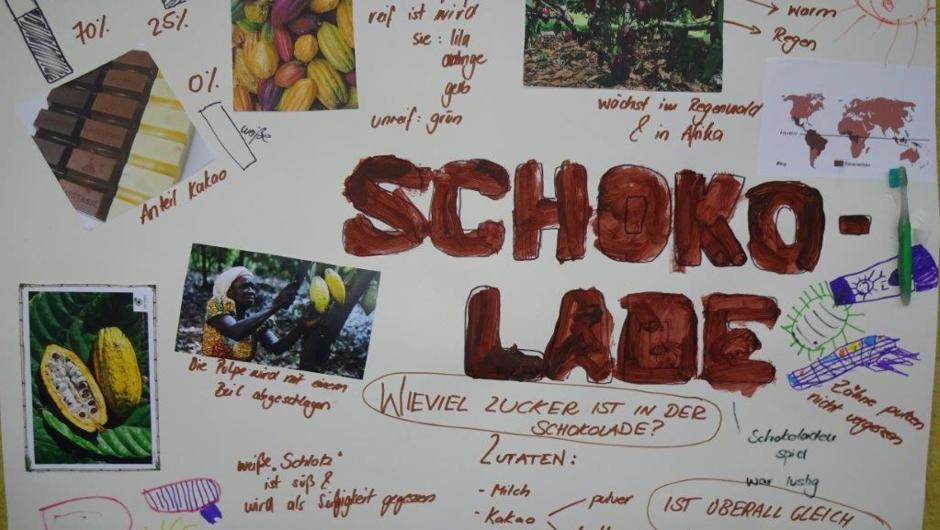 70%
25%
reif ist wird
sie: lila
orange
gelb
unreif: grün
→ warm
→ Regen
0%
weiße
Anteil Kakao
wächst im Regenwald
& in Afrika
SCHOKO-
LADE
Die Pulpe wird mit einem
Beil abgeschlagen
WIEVIEL ZUCKER IST IN DER
SCHOKOLADE?
Zähne putzen
nicht vergessen
Schokoladen
spiel
war lustig
ZUTATEN:
- Milch
- Kakao
pulver
weiße „Schlotz“
ist süß &
wird als Süßigkeit gegessen
IST ÜBERALL GLEICH